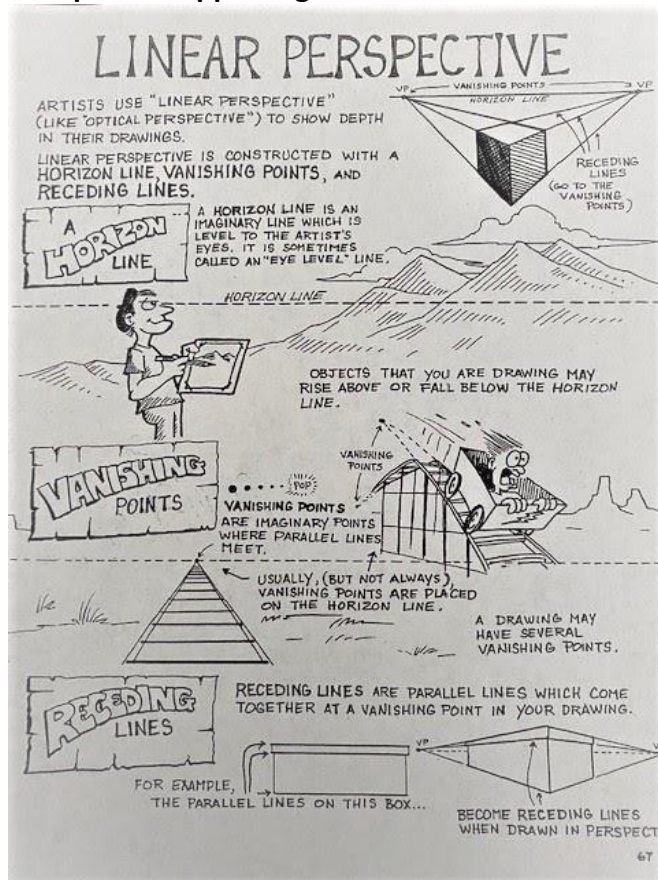 LINEAR PERSPECTIVE
ARTISTS USE "LINEAR PERSPECTIVE"
(LIKE "OPTICAL PERSPECTIVE") TO SHOW DEPTH
IN THEIR DRAWINGS.
LINEAR PERSPECTIVE IS CONSTRUCTED WITH A
HORIZON LINE, VANISHING POINTS, AND
RECEDING LINES.
VP
VANISHING POINTS
VP
HORIZON LINE
RECEDING
LINES
(GO TO THE
VANISHING
POINTS)
A
HORIZON
LINE
A HORIZON LINE IS AN
IMAGINARY LINE WHICH IS
LEVEL TO THE ARTIST'S
EYES. IT IS SOMETIMES
CALLED AN "EYE LEVEL" LINE.
HORIZON LINE
OBJECTS THAT YOU ARE DRAWING MAY
RISE ABOVE OR FALL BELOW THE HORIZON
LINE.
VANISHING
POINTS
POP
VANISHING POINTS
ARE IMAGINARY POINTS
WHERE PARALLEL LINES
MEET.
VANISHING
POINTS
USUALLY, (BUT NOT ALWAYS),
VANISHING POINTS ARE PLACED
ON THE HORIZON LINE.
A DRAWING MAY
HAVE SEVERAL
VANISHING POINTS.
RECEDING
LINES
RECEDING LINES ARE PARALLEL LINES WHICH COME
TOGETHER AT A VANISHING POINT IN YOUR DRAWING.
FOR EXAMPLE,
THE PARALLEL LINES ON THIS BOX...
VP
BECOME RECEDING LINES
WHEN DRAWN IN PERSPECT
67